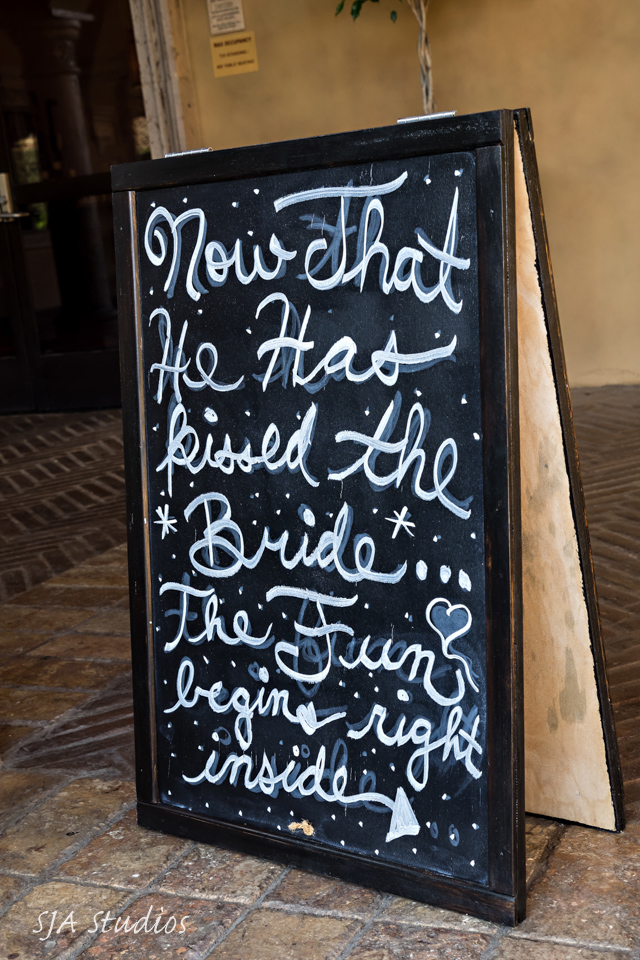 MAX OCCUPANCY
Now That
He Has
kissed the
Bride...
The Fun
begins right
inside
SJA Studios